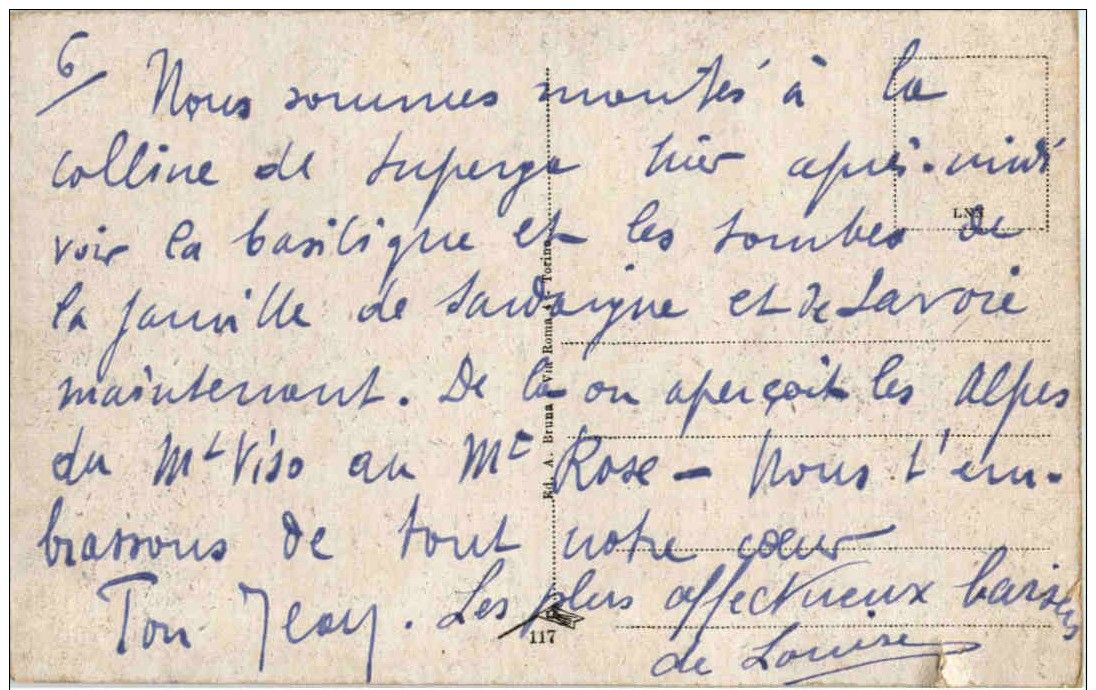 6/ Nous sommes montés à la
colline de Superga hier après-midi
voir la basilique et les tombes de
la famille de Sardaigne et de Savoie
maintenant. De là on aperçoit les Alpes
du Mt Viso au Mt Rose - Nous t'em-
brassons de tout notre cœur
Ton Jean. Les plus affectueux baisers
de Louise
LNN
Ed. A. Bruna - Via Roma Torino
117